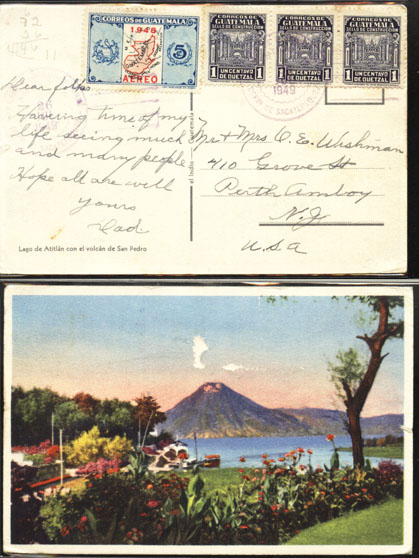 72
CORREOS DE GUATEMALA
1948
5
AEREO
CORREOS DE GUATEMALA
SELLO DE CONSTRUCCION
UN CENTAVO DE QUETZAL
1
CORREOS DE GUATEMALA
SELLO DE CONSTRUCCION
UN CENTAVO DE QUETZAL
1
CORREOS DE GUATEMALA
SELLO DE CONSTRUCCION
UN CENTAVO DE QUETZAL
1
1949
Dear folks
Having time of my
life seeing much
and many people
Hope all are well
Yours
Dad
Lago de Atitlán con el volcán de San Pedro
Mr + Mrs O. E. Wishman
410 Grove St
Perth Amboy
N.J.
U.S.A